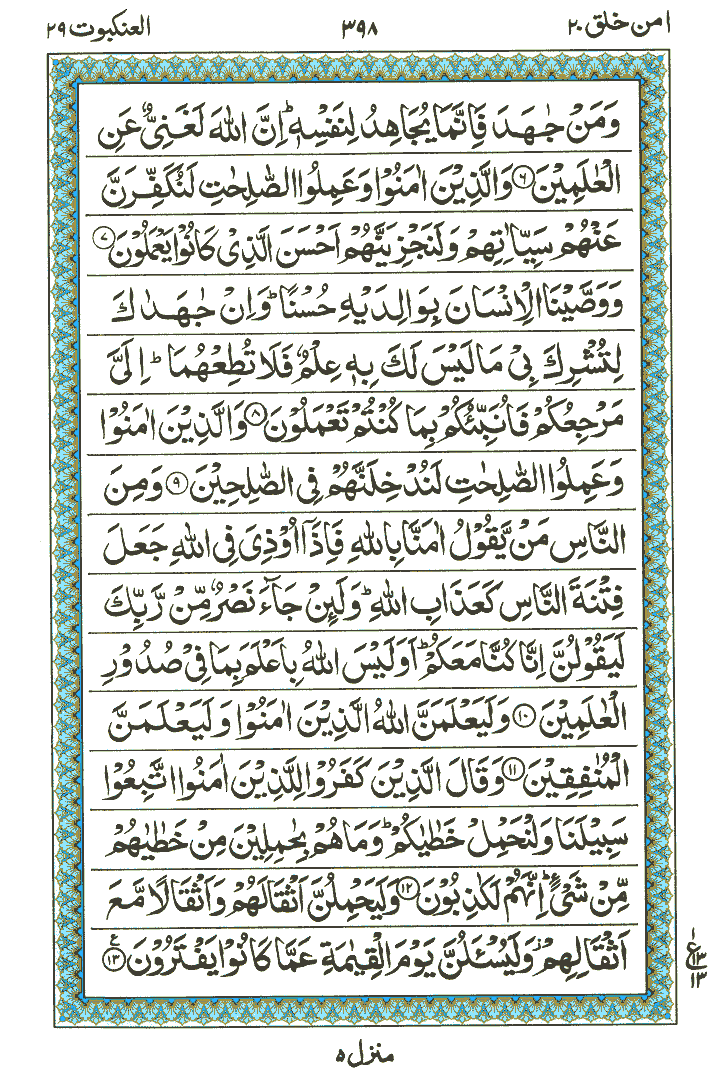 امن خلق ۲۰ ۳۹۸ العنكبوت ۲۹
وَمَنْ جٰهَدَ فَاِنَّمَا يُجَاهِدُ لِنَفْسِهٖ ؕ اِنَّ اللّٰهَ لَغَنِيٌّ عَنِ
الْعٰلَمِيْنَ ۶ وَالَّذِيْنَ اٰمَنُوْا وَعَمِلُوا الصّٰلِحٰتِ لَنُكَفِّرَنَّ
عَنْهُمْ سَيِّاٰتِهِمْ وَلَنَجْزِيَنَّهُمْ اَحْسَنَ الَّذِيْ كَانُوْا يَعْمَلُوْنَ ۷
وَوَصَّيْنَا الْاِنْسَانَ بِوَالِدَيْهِ حُسْنًا ؕ وَاِنْ جٰهَدٰكَ
لِتُشْرِكَ بِيْ مَا لَيْسَ لَكَ بِهٖ عِلْمٌ فَلَا تُطِعْهُمَا ؕ اِلَيَّ
مَرْجِعُكُمْ فَاُنَبِّئُكُمْ بِمَا كُنْتُمْ تَعْمَلُوْنَ ۸ وَالَّذِيْنَ اٰمَنُوْا
وَعَمِلُوا الصّٰلِحٰتِ لَنُدْخِلَنَّهُمْ فِي الصّٰلِحِيْنَ ۹ وَمِنَ
النَّاسِ مَنْ يَّقُوْلُ اٰمَنَّا بِاللّٰهِ فَاِذَاۤ اُوْذِيَ فِي اللّٰهِ جَعَلَ
فِتْنَةَ النَّاسِ كَعَذَابِ اللّٰهِ ؕ وَلَئِنْ جَآءَ نَصْرٌ مِّنْ رَّبِّكَ
لَيَقُوْلُنَّ اِنَّا كُنَّا مَعَكُمْ ؕ اَوَلَيْسَ اللّٰهُ بِاَعْلَمَ بِمَا فِيْ صُدُوْرِ
الْعٰلَمِيْنَ ۱۰ وَلَيَعْلَمَنَّ اللّٰهُ الَّذِيْنَ اٰمَنُوْا وَلَيَعْلَمَنَّ
الْمُنٰفِقِيْنَ ۱۱ وَقَالَ الَّذِيْنَ كَفَرُوْا لِلَّذِيْنَ اٰمَنُوا اتَّبِعُوْا
سَبِيْلَنَا وَلْنَحْمِلْ خَطٰيٰكُمْ ؕ وَمَا هُمْ بِحٰمِلِيْنَ مِنْ خَطٰيٰهُمْ
مِّنْ شَيْءٍ ؕ اِنَّهُمْ لَكٰذِبُوْنَ ۱۲ وَلَيَحْمِلُنَّ اَثْقَالَهُمْ وَاَثْقَالًا مَّعَ
اَثْقَالِهِمْ ؗ وَلَيُسْئَلُنَّ يَوْمَ الْقِيٰمَةِ عَمَّا كَانُوْا يَفْتَرُوْنَ ۱۳ ع
۱
ع ۱۳
۱۳
منزل ۵